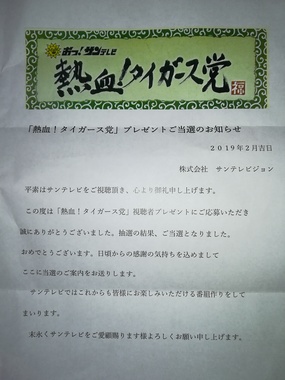 おっ！サンテレビ
熱血！タイガース党
福
「熱血！タイガース党」プレゼントご当選のお知らせ
２０１９年２月吉日
株式会社　サンテレビジョン
平素はサンテレビをご視聴頂き、心より御礼申し上げます。
この度は「熱血！タイガース党」視聴者プレゼントにご応募いただき
誠にありがとうございました。抽選の結果、ご当選となりました。
おめでとうございます。日頃からの感謝の気持ちを込めまして
ここに当選のご案内をお送りします。
サンテレビではこれからも皆様にお楽しみいただける番組作りをして
まいります。
末永くサンテレビをご愛顧賜ります様よろしくお願い申し上げます。